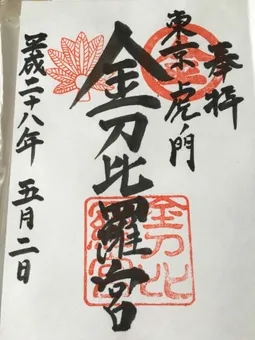 奉拝
東京虎ノ門
金刀比羅宮
平成二十八年 五月二日
金刀比
羅宮